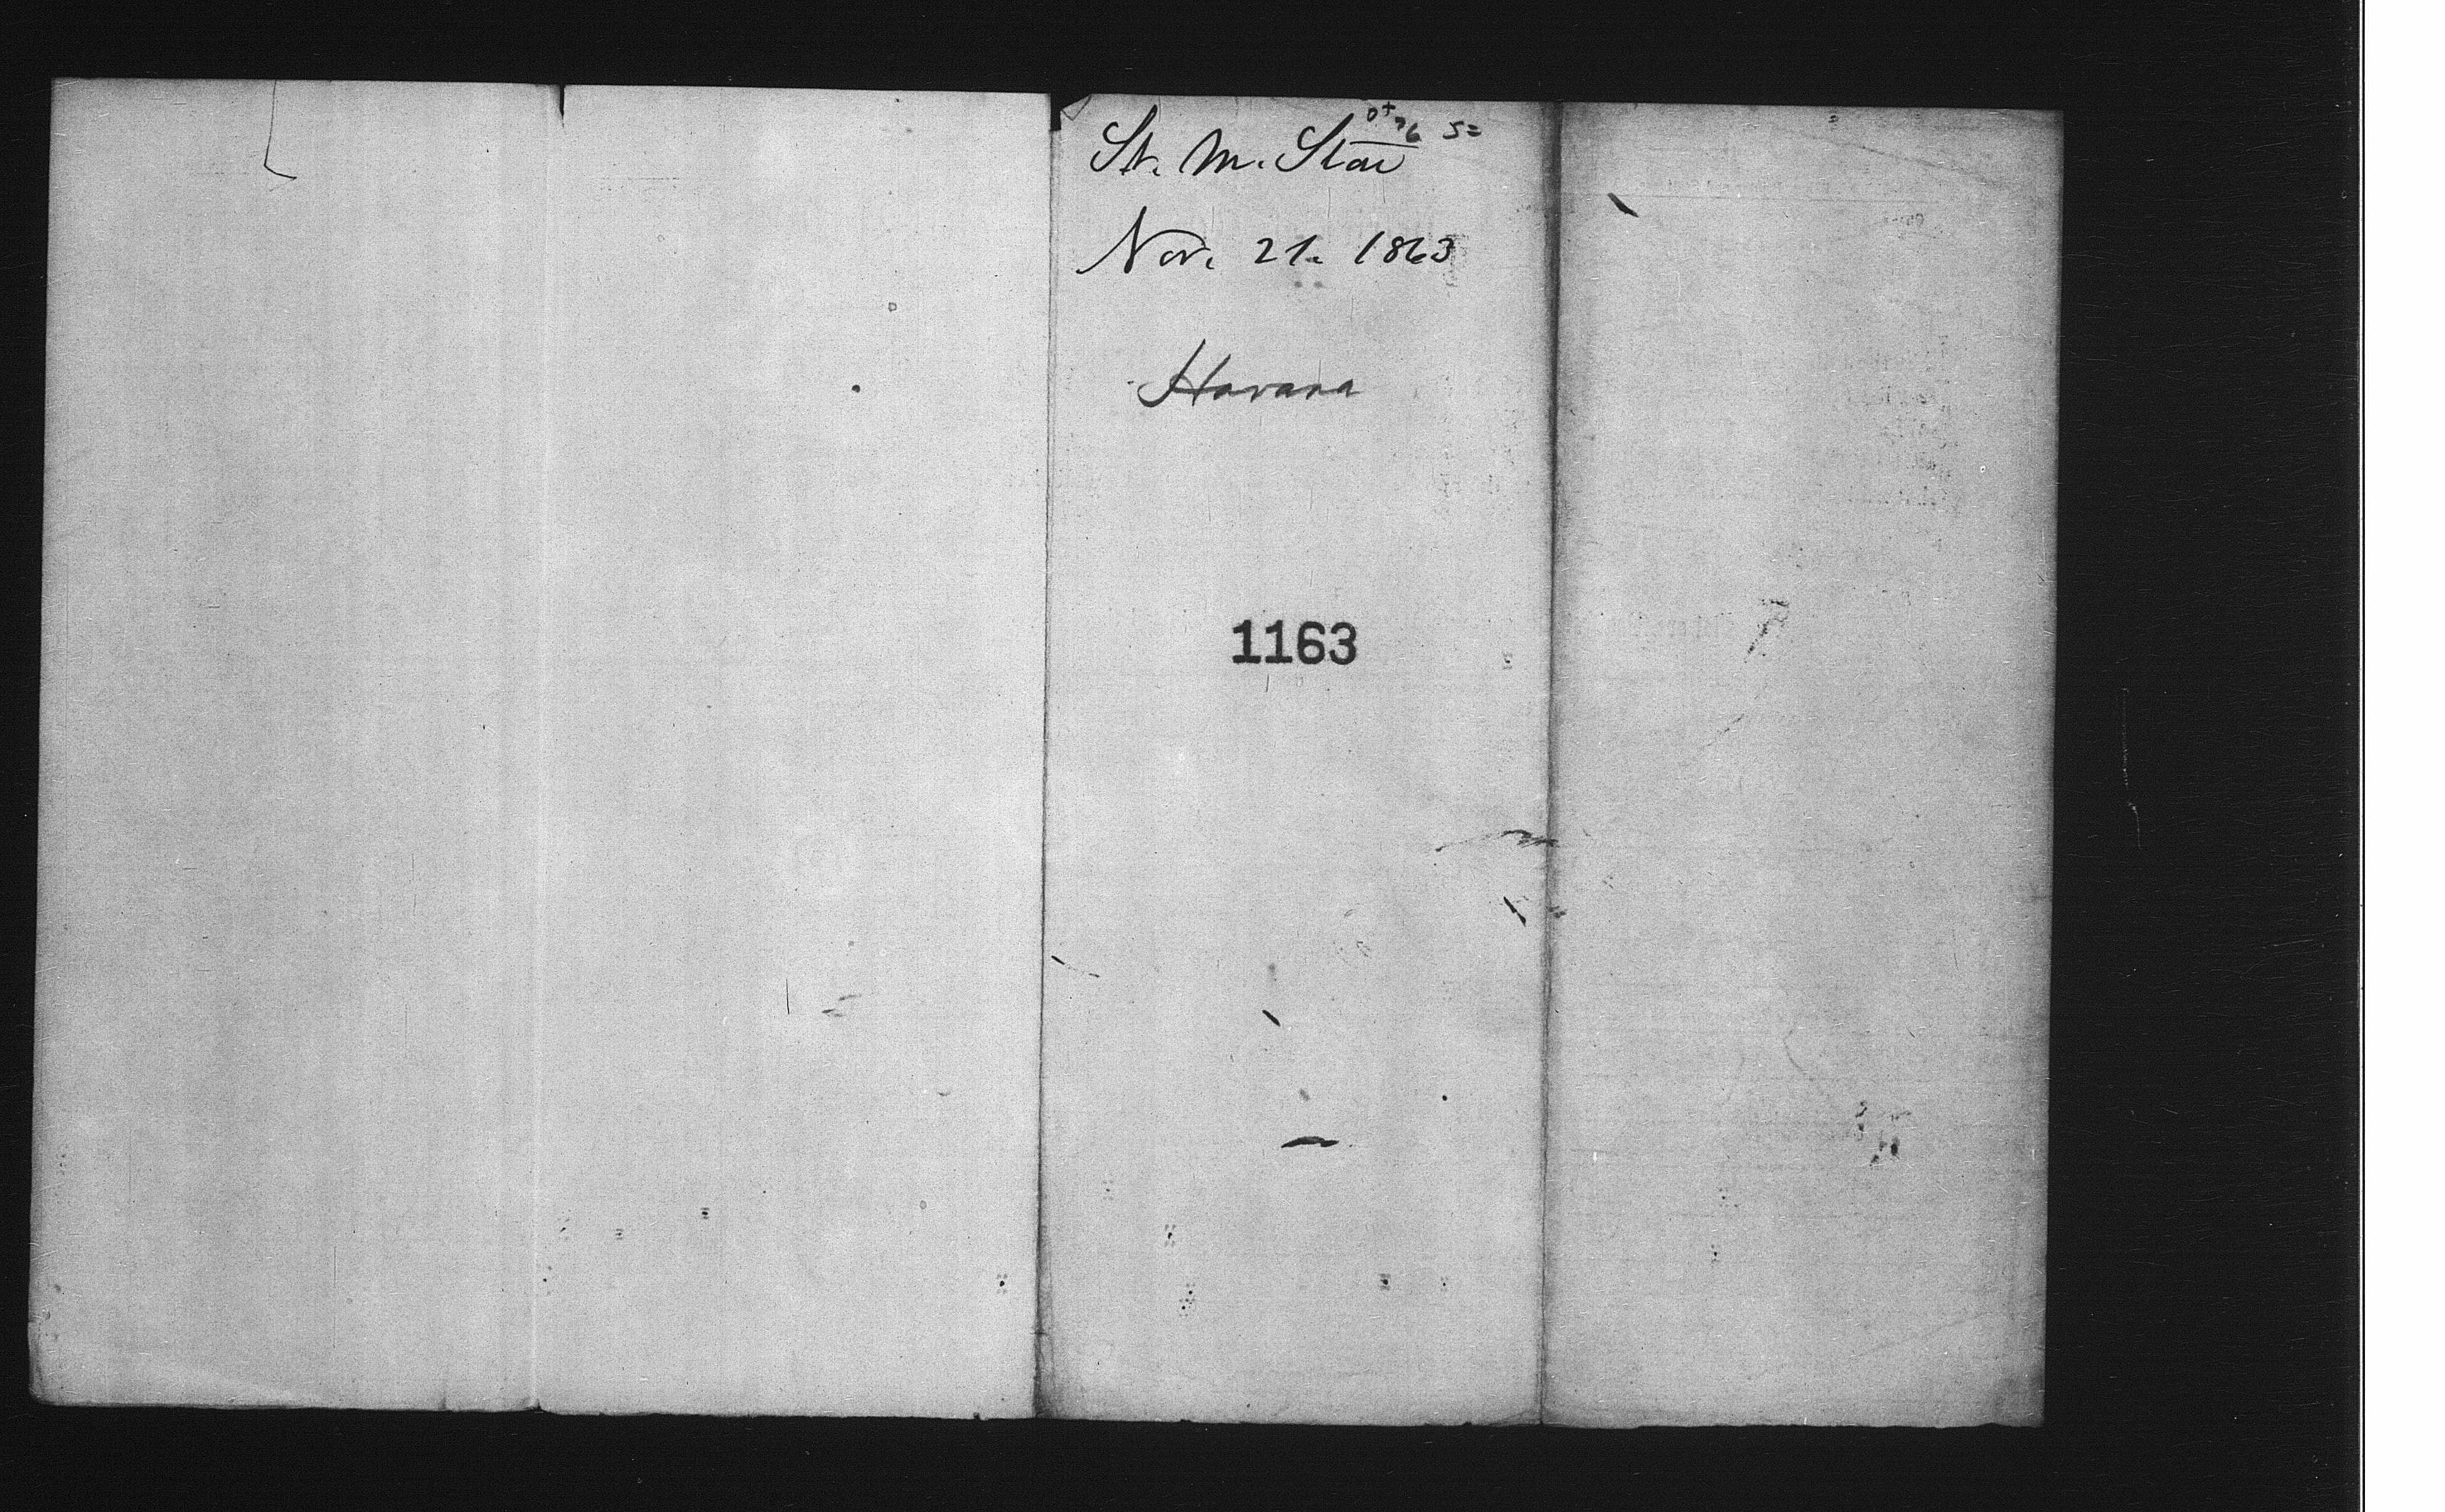 St. M. Star
Nov. 21. 1863
Havana
1163